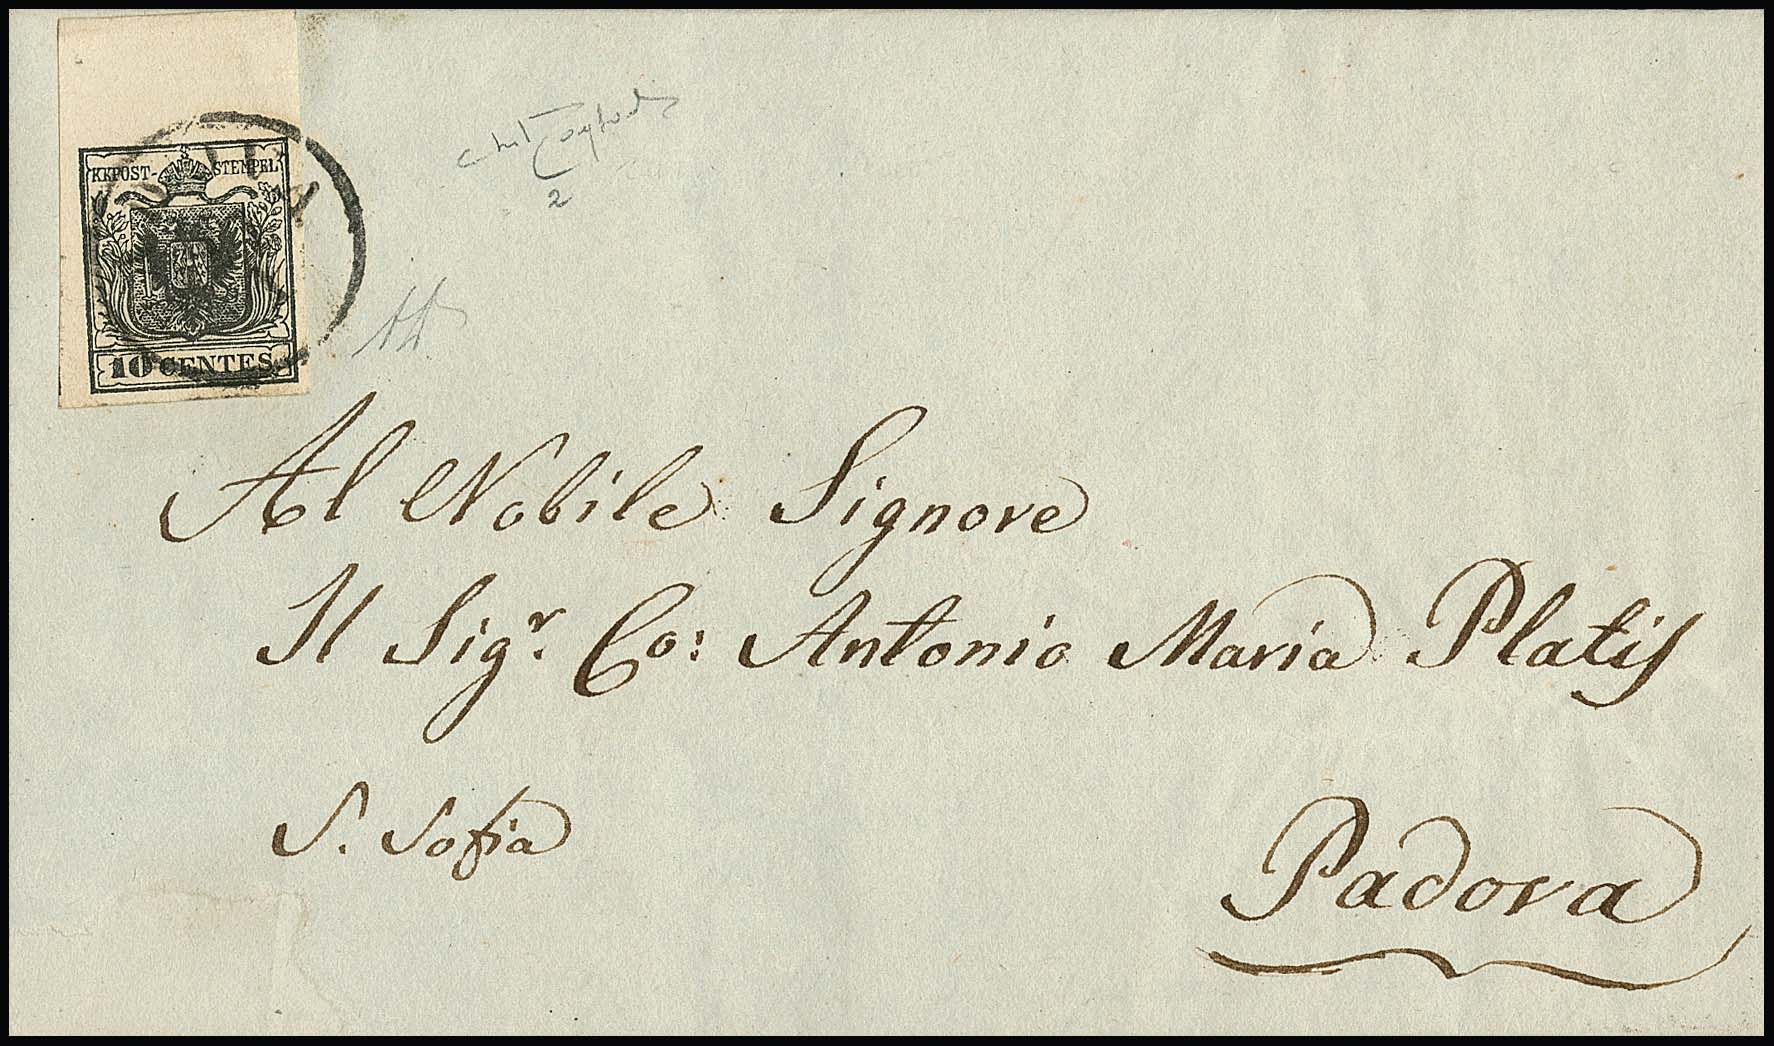 KKPOST-STEMPEL
10 CENTES.
2
Al Nobile Signore
Il Sigr. Co: Antonio Maria Platis
S. Sofia
Padova